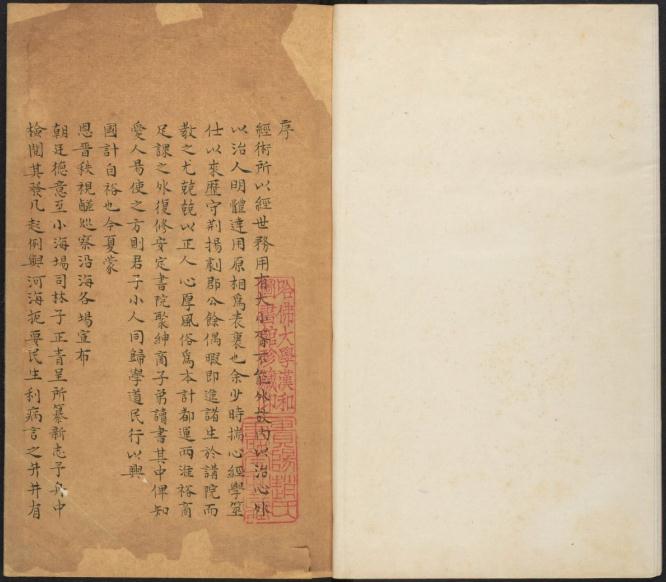 序
經術所以經世務用有大小
以治人明體達用原相爲表裏也余少時揣心經學筮
仕以來歷守荆揚劇郡公餘偶暇即進諸生於講院而
敎之尤兢兢以正人心厚風俗爲本計都運兩淮裕商
足課之外復修安定書院聚紳商子弟讀書其中俾知
愛人易使之方則君子小人同歸學道民行以興
國計自裕也今夏蒙
恩晋秩視鹺巡察沿海各場宣布
朝廷德意至小海場司林子正青呈所纂新志予舟中
檢閱其發凡起例與河海扼要民生利病言之井井有
哈佛大學漢和
圖書館珍藏印